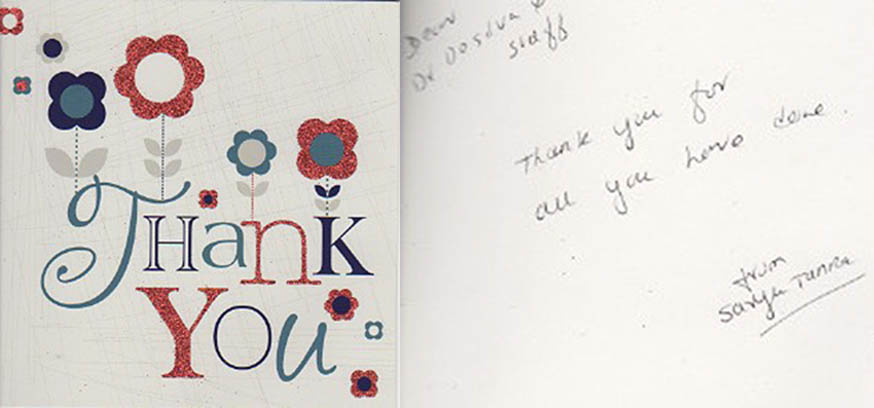 Thank
You
Dear
Dr Dasilva &
staff
Thank you for
all you have done.
from
Saryu Tanna